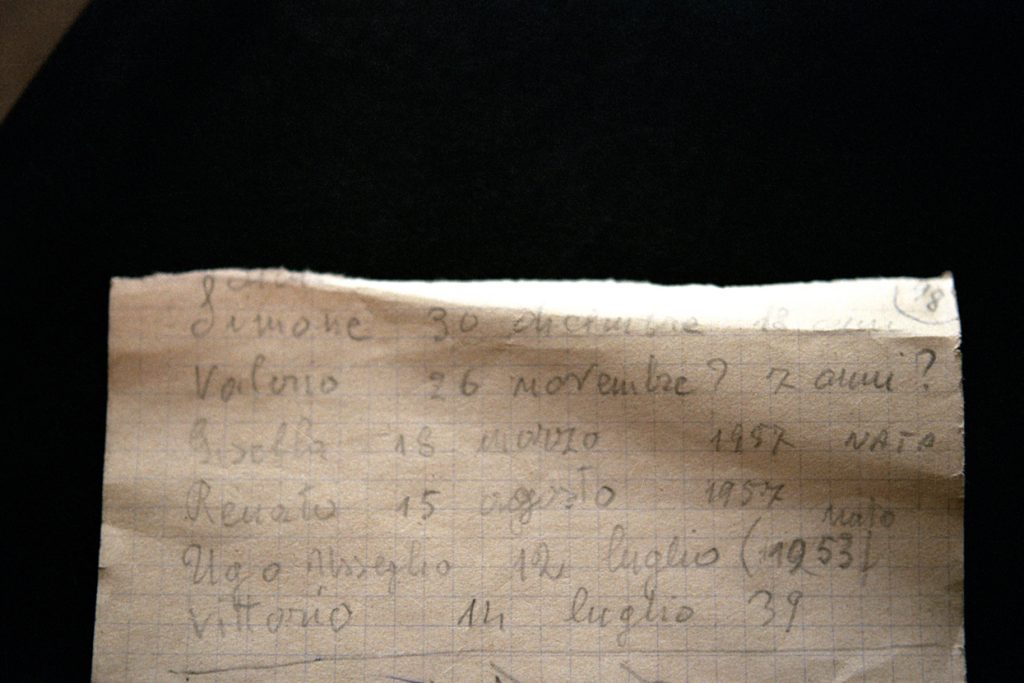 18
Simone 30 dicembre 18 anni
Valerio 26 novembre? 7 anni?
18 marzo 1957 NATA
Renato 15 agosto 1957
nato
Ugo 12 luglio (1953)
Vittorio 14 luglio 39